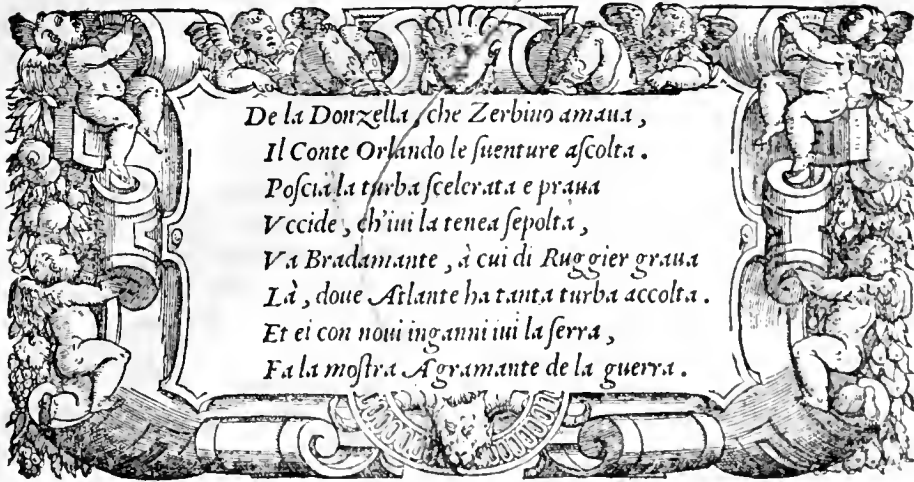 De la Donzella, che Zerbino amaua,
Il Conte Orlando le ſuenture aſcolta.
Poſcia la turba ſcelerata e praua
Vccide, ch'iui la tenea ſepolta,
Va Bradamante, à cui di Ruggier graua
Là, doue Atlante ha tanta turba accolta.
Et ei con noui inganni iui la ſerra,
Fa la moſtra Agramante de la guerra.